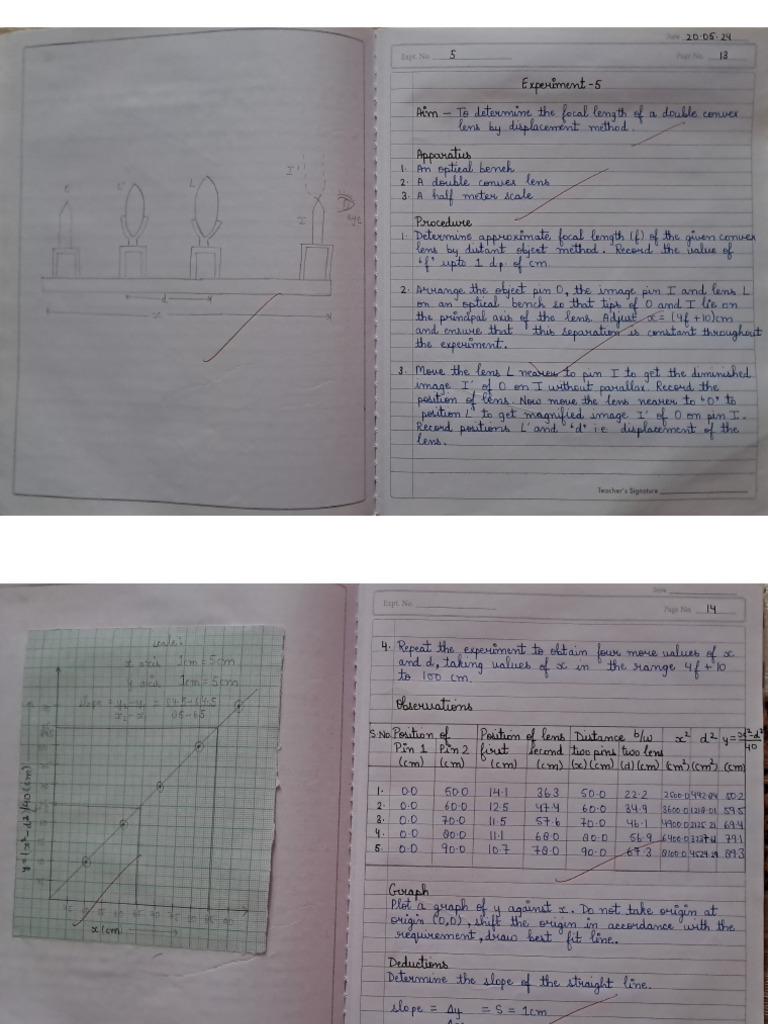 Date 20.05.24
Expt. No. 5 Page No. 13
Experiment-5
Aim — To determine the focal length of a double convex
lens by displacement method.
Apparatus
1. An optical bench
2. A double convex lens
3. A half meter scale
Procedure
1. Determine approximate focal length (f) of the given convex
lens by distant object method. Record the value of
"f" upto 1 dp. of cm.
2. Arrange the object pin O, the image pin I and lens L
on an optical bench so that tips of O and I lie on
the principal axis of the lens. Adjust x = (4f +10)cm
and ensure that this separation is constant throughout
the experiment.
3. Move the lens L nearer to pin I to get the diminished
image I' of O on I without parallax. Record the
position of lens. Now move the lens nearer to "O" to
position L' to get magnified image I' of O on pin I.
Record positions L' and 'd' i.e displacement of the
lens.
Teacher's Signature
L' L I' I eye
d
x
Date
Expt. No. Page No. 14
4. Repeat the experiment to obtain four more values of x
and d, taking values of x in the range 4f + 10
to 100 cm.
Observations
S.No. Position of Position of lens Distance b/w x² d² y = x²-d²/40
Pin 1 Pin 2 first second two pins two lens
(cm) (cm) (cm) (cm) (x)(cm) (d)(cm) (cm²) (cm²) (cm)
1. 0.0 50.0 14.1 36.3 50.0 22.2 2500.0 492.84 50.2
2. 0.0 60.0 12.5 47.4 60.0 34.9 3600.0 1218.01 59.5
3. 0.0 70.0 11.5 57.6 70.0 46.1 4900.0 2125.21 69.4
4. 0.0 80.0 11.1 68.0 80.0 56.9 6400.0 79.1
5. 0.0 90.0 10.7 78.0 90.0 67.3 8100.0 4529.29 89.3
Graph
Plot a graph of y against x. Do not take origin at
origin (0,0), shift the origin in accordance with the
requirement, draw best fit line.
Deductions
Determine the slope of the straight line.
slope = Δy = S = 1cm
scale:
x axis 1cm = 5cm
y axis 1cm = 5cm
slope = y₂-y₁
x₂-x₁
y = (x²-d²)/40 (cm)
x (cm)